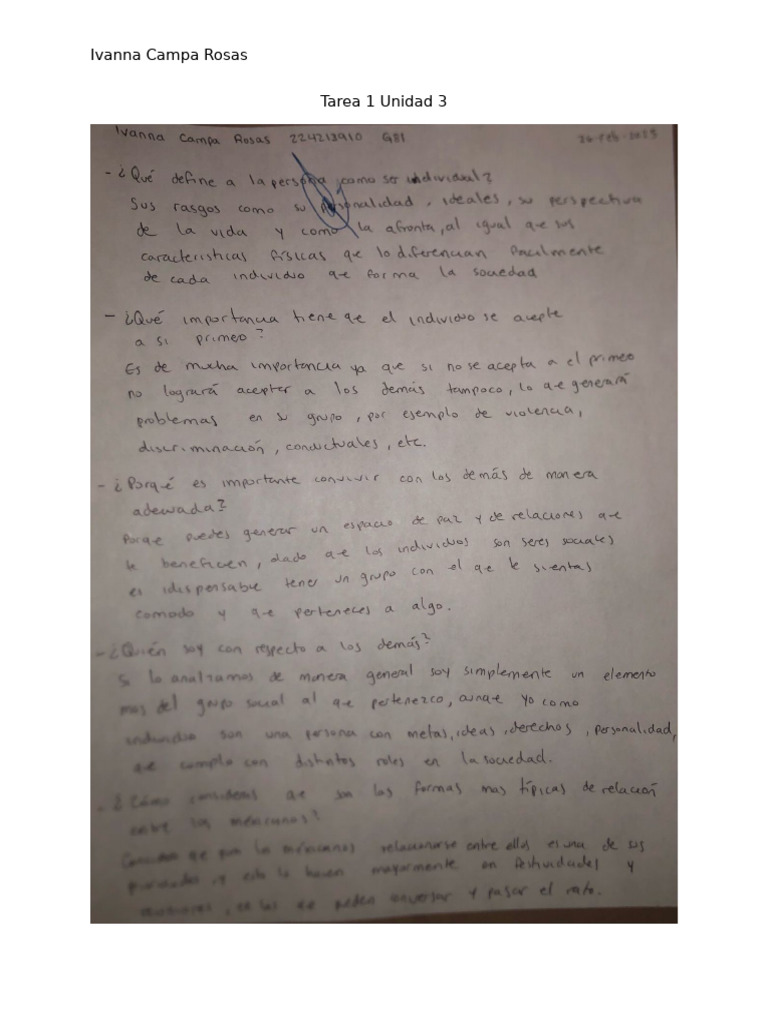 Ivanna Campa Rosas
Tarea 1 Unidad 3
Ivanna Campa Rosas 224213910 G81 26-Feb-2025
- ¿Qué define a la persona como ser individual?
Sus rasgos como su personalidad, ideales, su perspectiva
de la vida y como la afronta, al igual que sus
caracteristicas físicas que lo diferencian facilmente
de cada individuo que forma la sociedad
- ¿Qué importancia tiene que el individuo se acepte
a si primeo?
Es de mucha importancia ya que si no se acepta a el primeo
no logrará aceptar a los demás tampoco, lo que generará
problemas en su grupo, por ejemplo de violencia,
discriminación, conductuales, etc.
- ¿Porqué es importante convivir con los demás de manera
adecuada?
Porque puedes generar un espacio de paz y de relaciones que
te beneficien, dado que los individuos son seres sociales
es idispensable tener un grupo con el que te sientas
comodo y que perteneces a algo.
- ¿Quién soy con respecto a los demás?
Si lo analizamos de manera general soy simplemente un elemento
mas del grupo social al que pertenezco, aunque yo como
individuo son una persona con metas, ideas, derechos, personalidad,
que cumpla con distintos roles en la sociedad.
- ¿Cómo consideras que son las formas mas típicas de relación
entre los mexicanos?
Considero que para los mexicanos relacionarse entre ellos es una de sus
prioridades, y esto lo hacen mayormente en festividades y
reuniones, en las que pueden conversar y pasar el rato.